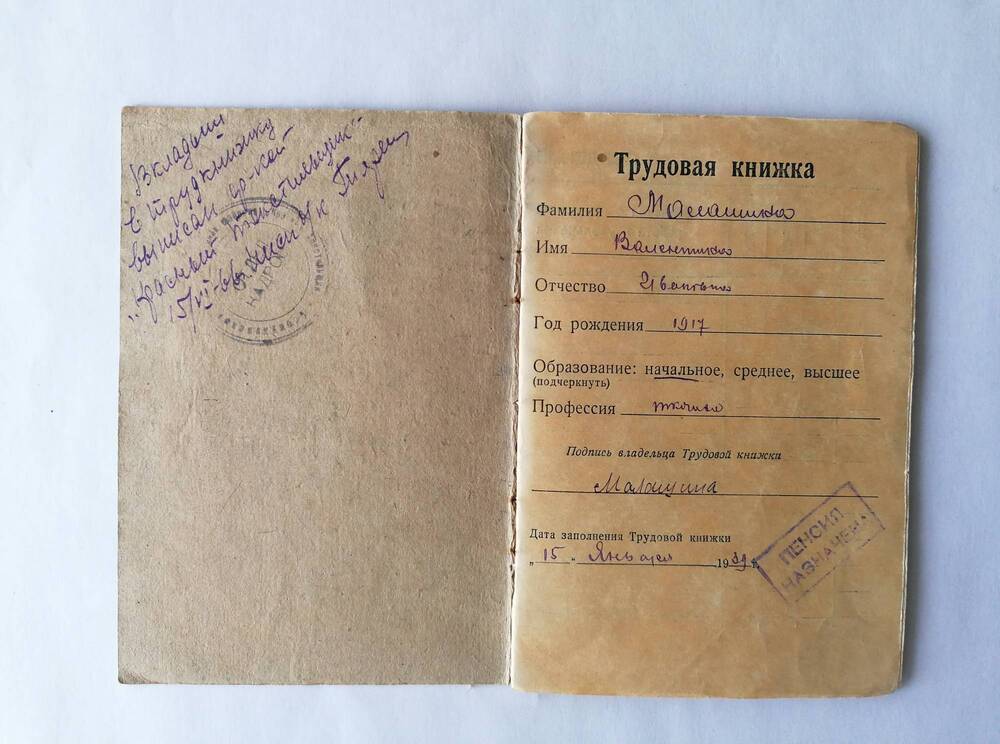 Вкладыш
в трудкнижку
выписан ф-кой
"Красный текстильщик"
15/VI-66. Нач О/к
НАДРО
Трудовая книжка
Фамилия Малашина
Имя Валентина
Отчество Ивановна
Год рождения 1917
Образование: начальное, среднее, высшее
(подчеркнуть)
Профессия ткачиха
Подпись владельца Трудовой книжки
Малашина
Дата заполнения Трудовой книжки
„15" Января 1939 г.
ПЕНСИЯ
НАЗНАЧЕНА